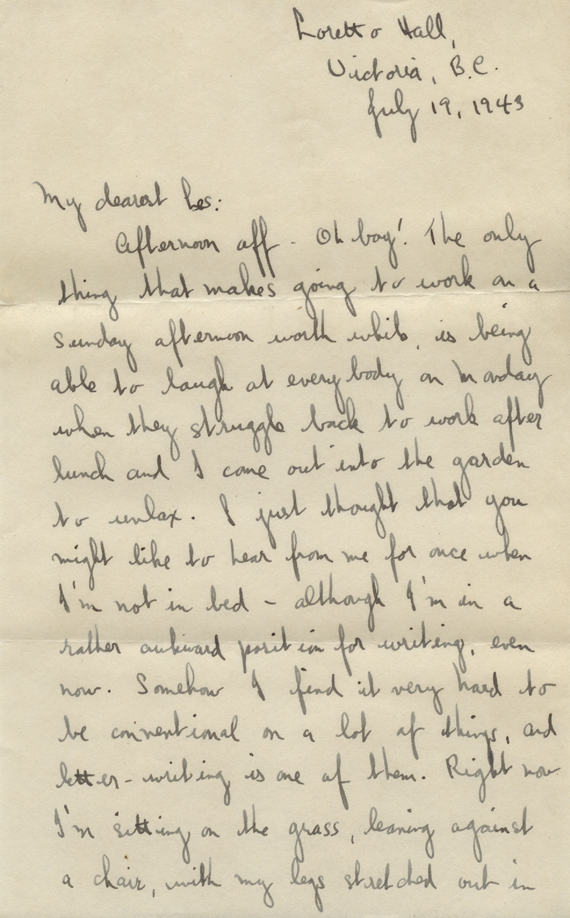 Loretto Hall,
Victoria, B.C.
July 19, 1943
My dearest Les:
Afternoon off - Oh boy! The only
thing that makes going to work on a
Sunday afternoon worth while, is being
able to laugh at everybody on Monday
when they struggle back to work after
lunch and I come out into the garden
to unlax. I just thought that you
might like to hear from me for once when
I'm not in bed - although I'm in a
rather awkward position for writing, even
now. Somehow I find it very hard to
be conventional on a lot of things, and
letter-writing is one of them. Right now
I'm sitting on the grass, leaning against
a chair, with my legs stretched out in